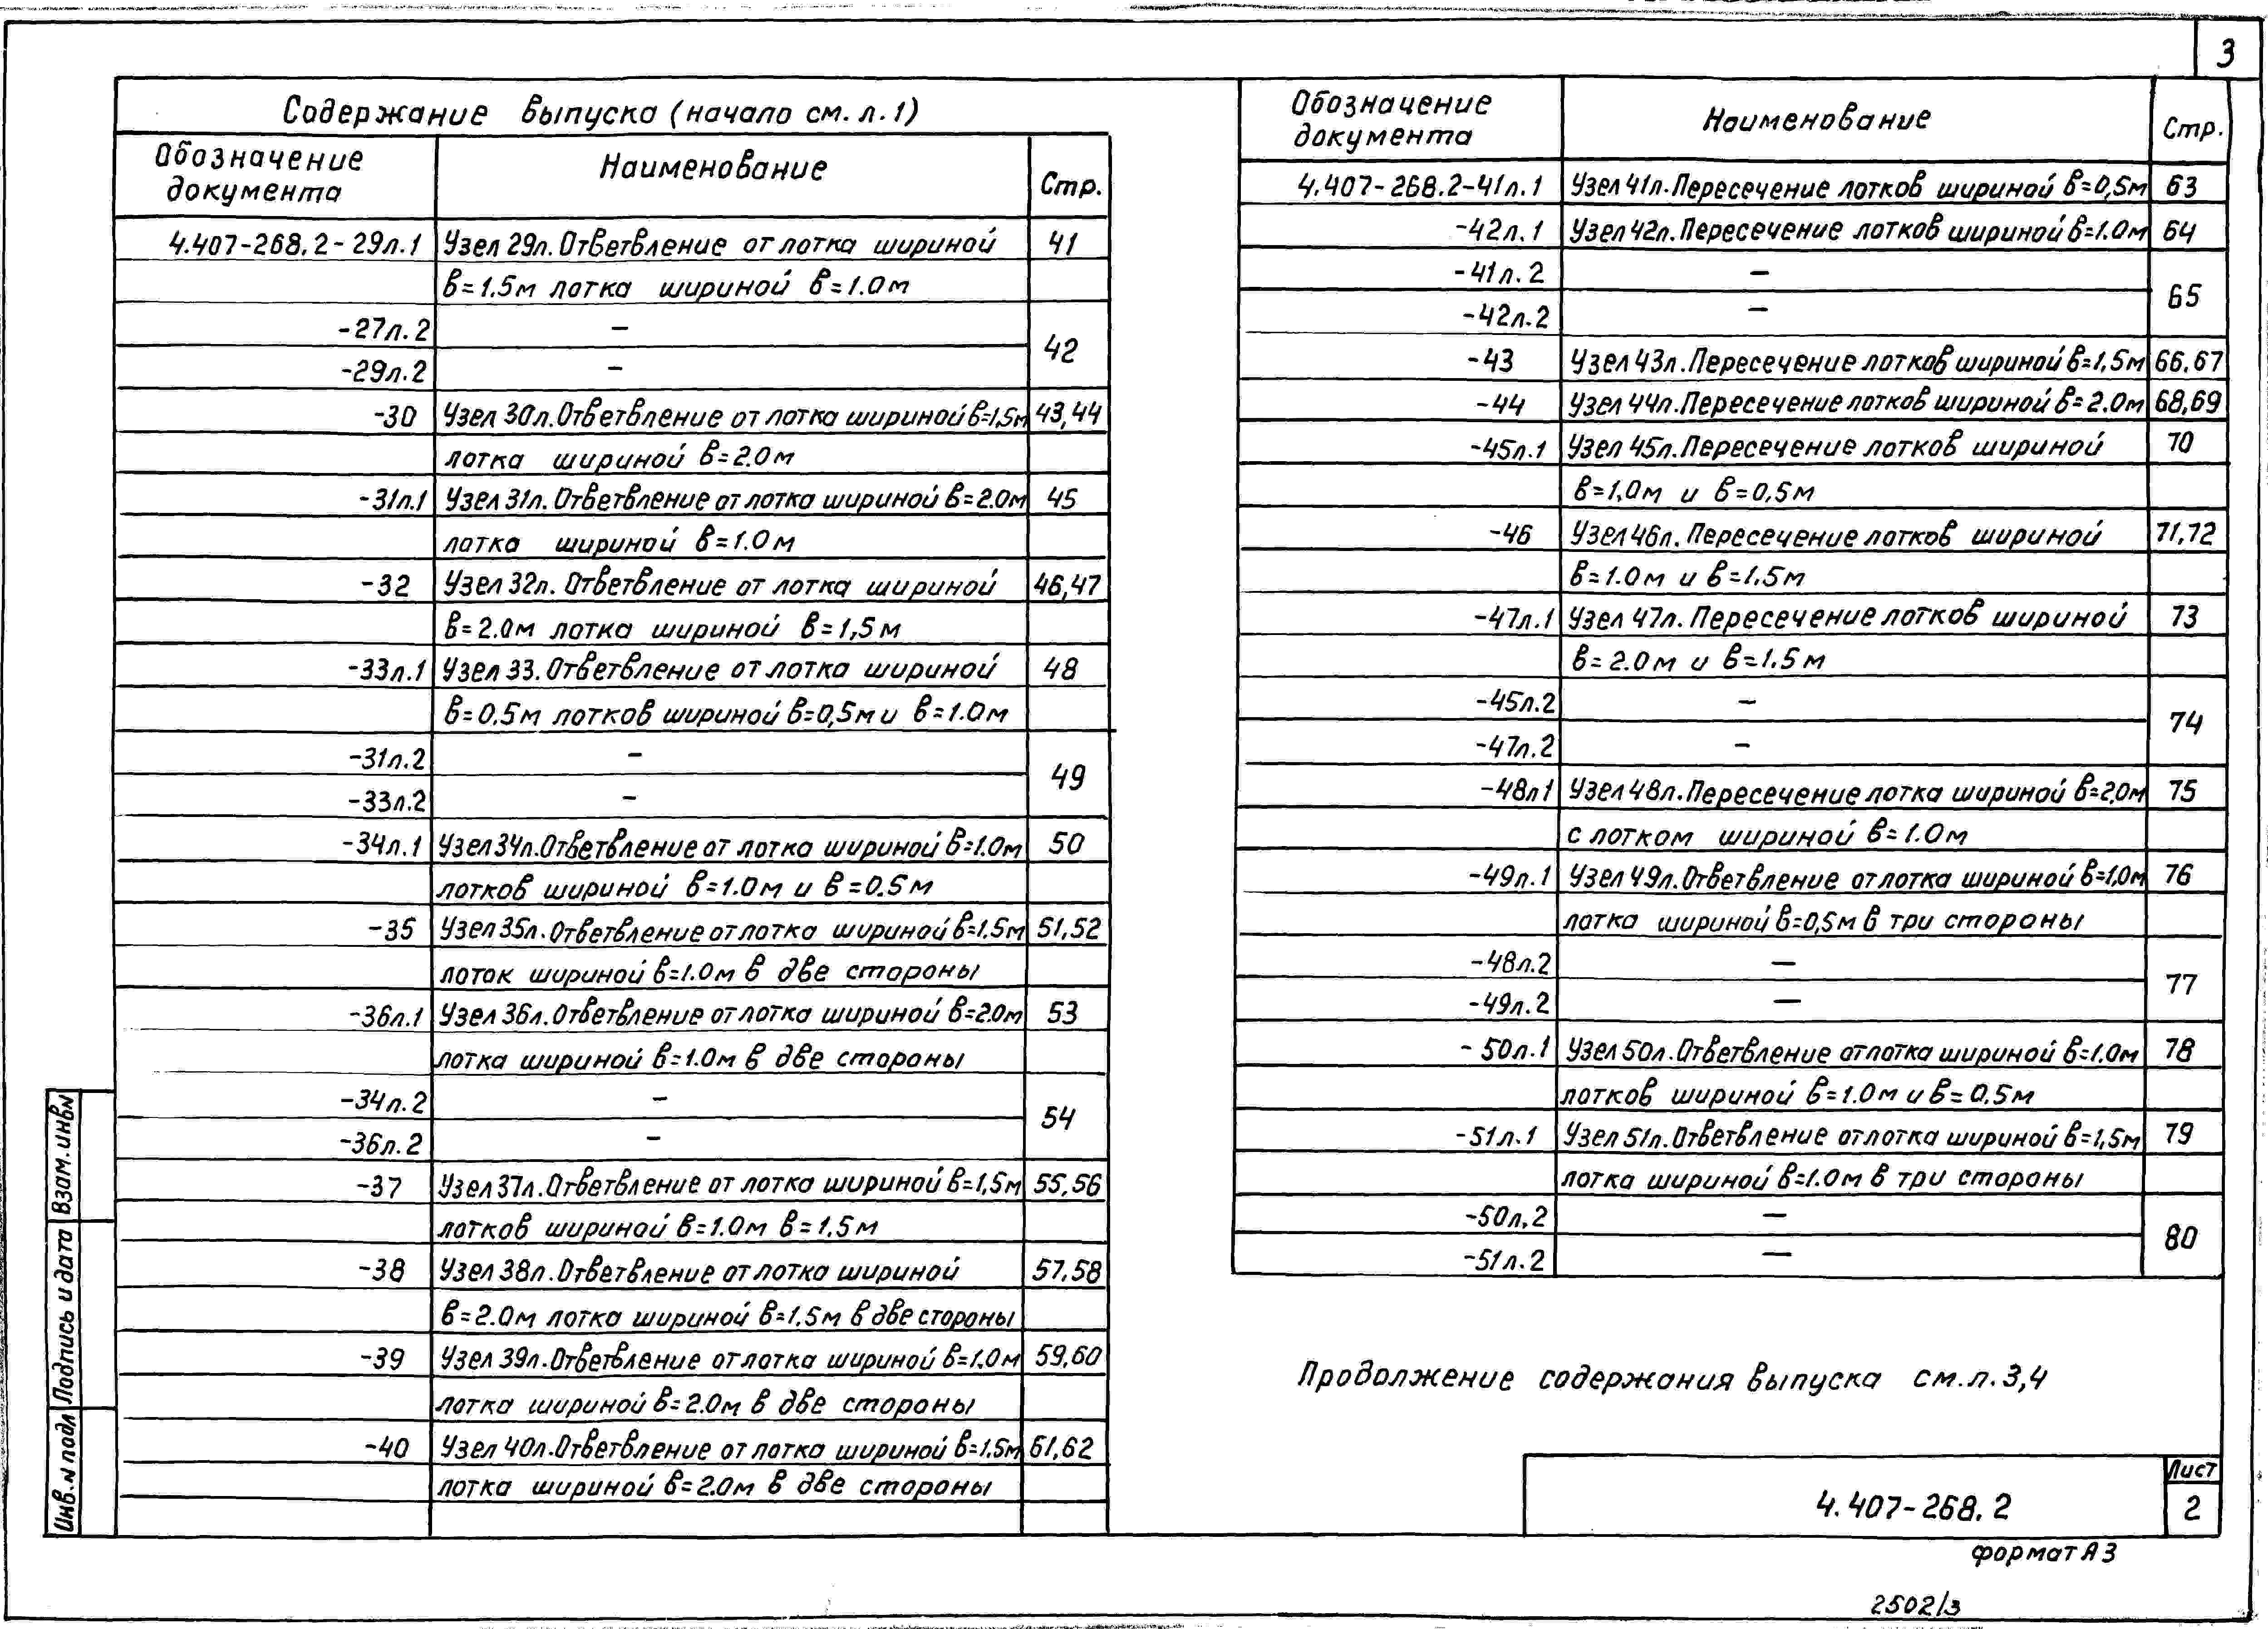 3
Содержание выпуска (начало см. л. 1)
Обозначение документа Наименование Стр.
4.407-268.2-29л.1 Узел 29л. Ответвление от лотка шириной 41
в=1.5м лотка шириной в=1.0м
-27л.2 – 42
-29л.2 –
-30 Узел 30л. Ответвление от лотка шириной в=1,5м 43,44
лотка шириной в=2.0м
-31л.1 Узел 31л. Ответвление от лотка шириной в=2.0м 45
лотка шириной в=1.0м
-32 Узел 32л. Ответвление от лотка шириной 46,47
в=2.0м лотка шириной в=1,5м
-33л.1 Узел 33. Ответвление от лотка шириной 48
в=0.5м лотков шириной в=0,5м и в=1.0м
-31л.2 – 49
-33л.2 –
-34л.1 Узел 34л. Ответвление от лотка шириной в=1.0м 50
лотков шириной в=1.0м и в=0.5м
-35 Узел 35л. Ответвление от лотка шириной в=1.5м 51,52
лоток шириной в=1.0м в две стороны
-36л.1 Узел 36л. Ответвление от лотка шириной в=2.0м 53
лотка шириной в=1.0м в две стороны
-34л.2 – 54
-36л.2 –
-37 Узел 37л. Ответвление от лотка шириной в=1,5м 55,56
лотков шириной в=1.0м в=1,5м
-38 Узел 38л. Ответвление от лотка шириной 57,58
в=2.0м лотка шириной в=1.5м в две стороны
-39 Узел 39л. Ответвление от лотка шириной в=1.0м 59,60
лотка шириной в=2.0м в две стороны
-40 Узел 40л. Ответвление от лотка шириной в=1.5м 61,62
лотка шириной в=2.0м в две стороны
Обозначение документа Наименование Стр.
4.407-268.2-41л.1 Узел 41л. Пересечение лотков шириной в=0,5м 63
-42л.1 Узел 42л. Пересечение лотков шириной в=1.0м 64
-41л.2 – 65
-42л.2 –
-43 Узел 43л. Пересечение лотков шириной в=1,5м 66,67
-44 Узел 44л. Пересечение лотков шириной в=2.0м 68,69
-45л.1 Узел 45л. Пересечение лотков шириной 70
в=1,0м и в=0,5м
-46 Узел 46л. Пересечение лотков шириной 71,72
в=1.0м и в=1,5м
-47л.1 Узел 47л. Пересечение лотков шириной 73
в=2.0м и в=1.5м
-45л.2 – 74
-47л.2 –
-48л1 Узел 48л. Пересечение лотка шириной в=2.0м 75
с лотком шириной в=1.0м
-49л.1 Узел 49л. Ответвление от лотка шириной в=1,0м 76
лотка шириной в=0,5м в три стороны
-48л.2 – 77
-49л.2 –
-50л.1 Узел 50л. Ответвление от лотка шириной в=1.0м 78
лотков шириной в=1.0м и в=0.5м
-51л.1 Узел 51л. Ответвление от лотка шириной в=1,5м 79
лотка шириной в=1.0м в три стороны
-50л.2 – 80
-51л.2 –
Продолжение содержания выпуска см.л.3,4
Взам. инв N
Подпись и дата
Инв. N подл
4.407-268.2
Лист
2
формат А3
2502/3